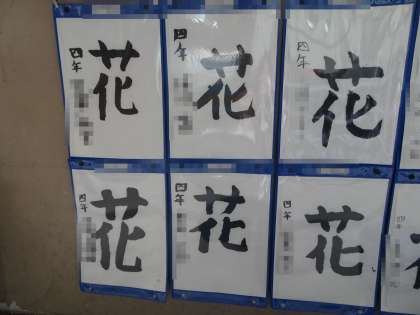 花
四年
花
四年
花
四年
花
四年
花
四年
花
四年
花
四年